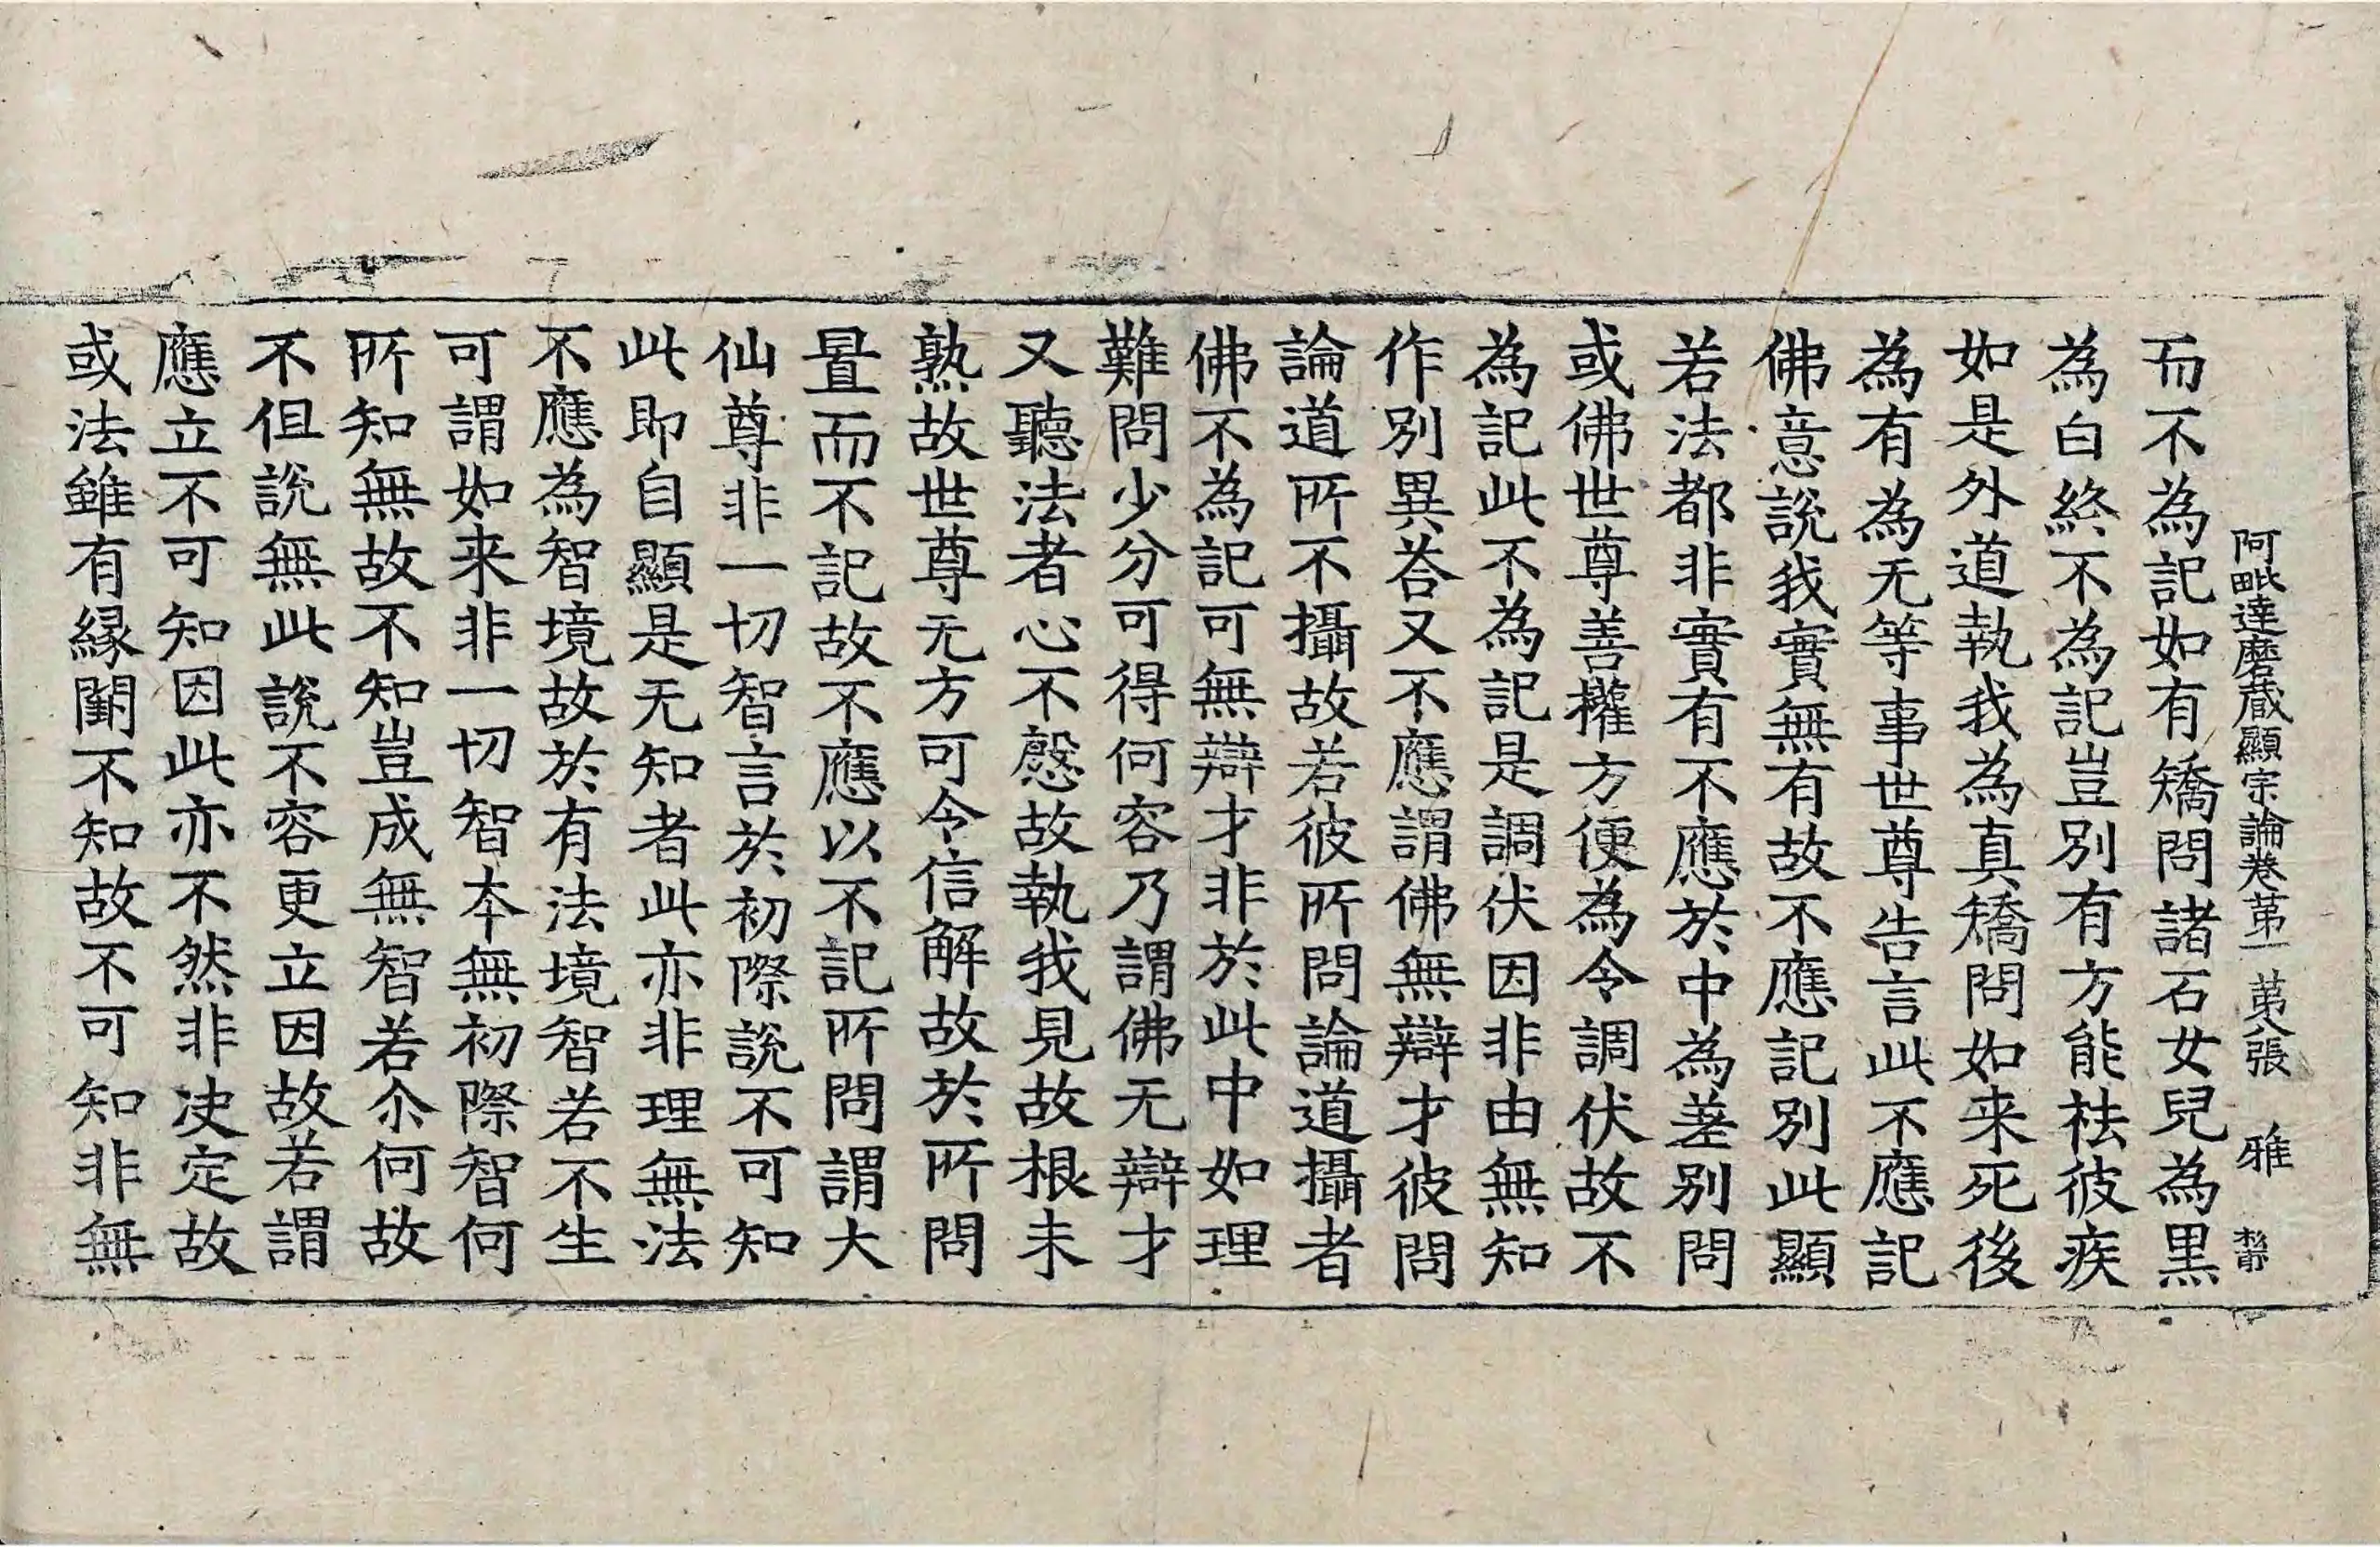 阿毗達磨蔵顯宗論卷苐一 苐八張 雅
而不為記如有矯問諸石女兒為黒
為白終不為記豈別有方能祛彼疾
如是外道執我為真矯問如来死後
為有為无等事世尊告言此不應記
佛意說我實無有故不應記別此顯
若法都非實有不應於中為差别問
或佛世尊善權方便為令調伏故不
為記此不為記是調伏因非由無知
作別異荅又不應謂佛無辯才彼問
論道所不攝故若彼所問論道攝者
佛不為記可無辯才非於此中如理
難問少分可得何容乃謂佛无辯才
又聽法者心不慇故執我見故根未
熟故世尊无方可令信解故於所問
置而不記故不應以不記所問謂大
仙尊非一切智言於初際說不可知
此即自顯是无知者此亦非理無法
不應為智境故於有法境智若不生
可謂如来非一切智本無初際智何
所知無故不知豈成無智若尒何故
不但說無此說不容更立因故若謂
應立不可知因此亦不然非决定故
或法雖有緣闕不知故不可知非無